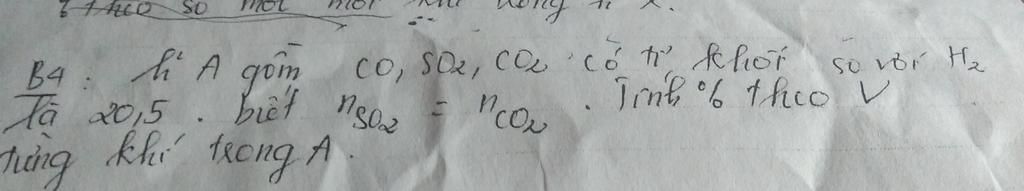 % theo số mol mỗi khí trong h² X.
B4: h² A gồm CO, SO2, CO2 có tỉ khối so với H2
là 20,5. biết nSO2 = nCO2. Tính % theo V
từng khí trong A.